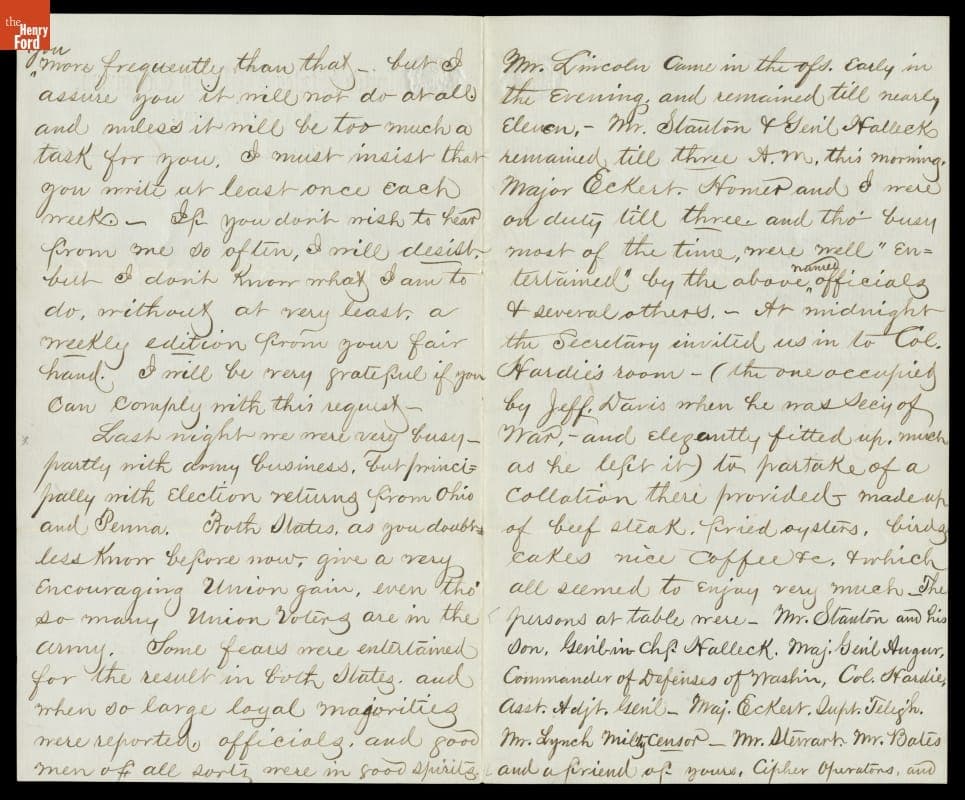 the
Henry
Ford
you
"more frequently than that – but I
assure you it will not do at all
and unless it will be too much a
task for you, I must insist that
you write at least once each
week – If you don't wish to hear
from me so often, I will desist,
but I don't know what I am to
do, without at very least, a
weekly edition from your fair
hand. I will be very grateful if you
can comply with this request –
Last night we were very busy –
partly with army business, but princi=
pally with Election returns from Ohio
and Penna. Both States, as you doubt=
less know before now, give a very
encouraging Union gain, even tho'
so many Union Voters are in the
army. Some fears were entertained
for the result in both States, and
when so large loyal majorities
were reported, officials, and good
men of all sorts were in good spirits.
Mr. Lincoln came in the ofs. early in
the evening, and remained till nearly
Eleven, – Mr. Stanton & Genl Halleck
remained till three A.M. this morning.
Major Eckert. Homer and I were
on duty till three and tho' busy
most of the time, were well "en=
tertained" by the above named officials
& several others. – At midnight
the Secretary invited us in to Col.
Hardie's room – (the one occupied
by Jeff. Davis when he was Secy of
War, – and elegantly fitted up, much
as he left it) to partake of a
collation there provided – made up
of beef steak, fried oysters, birds
cakes nice coffee &c. & which
all seemed to enjoy very much – The
persons at table were – Mr. Stanton and his
son, Genl-in-Chf. Halleck. Maj. Genl Augur,
Commander of Defenses of Washn, Col. Hardie,
Asst. Adjt. Genl – Maj. Eckert. Supt. Telegh.
Mr. Lynch Milty Censor – Mr. Stewart. Mr. Bates
and a friend of yours, Cipher Operators, and